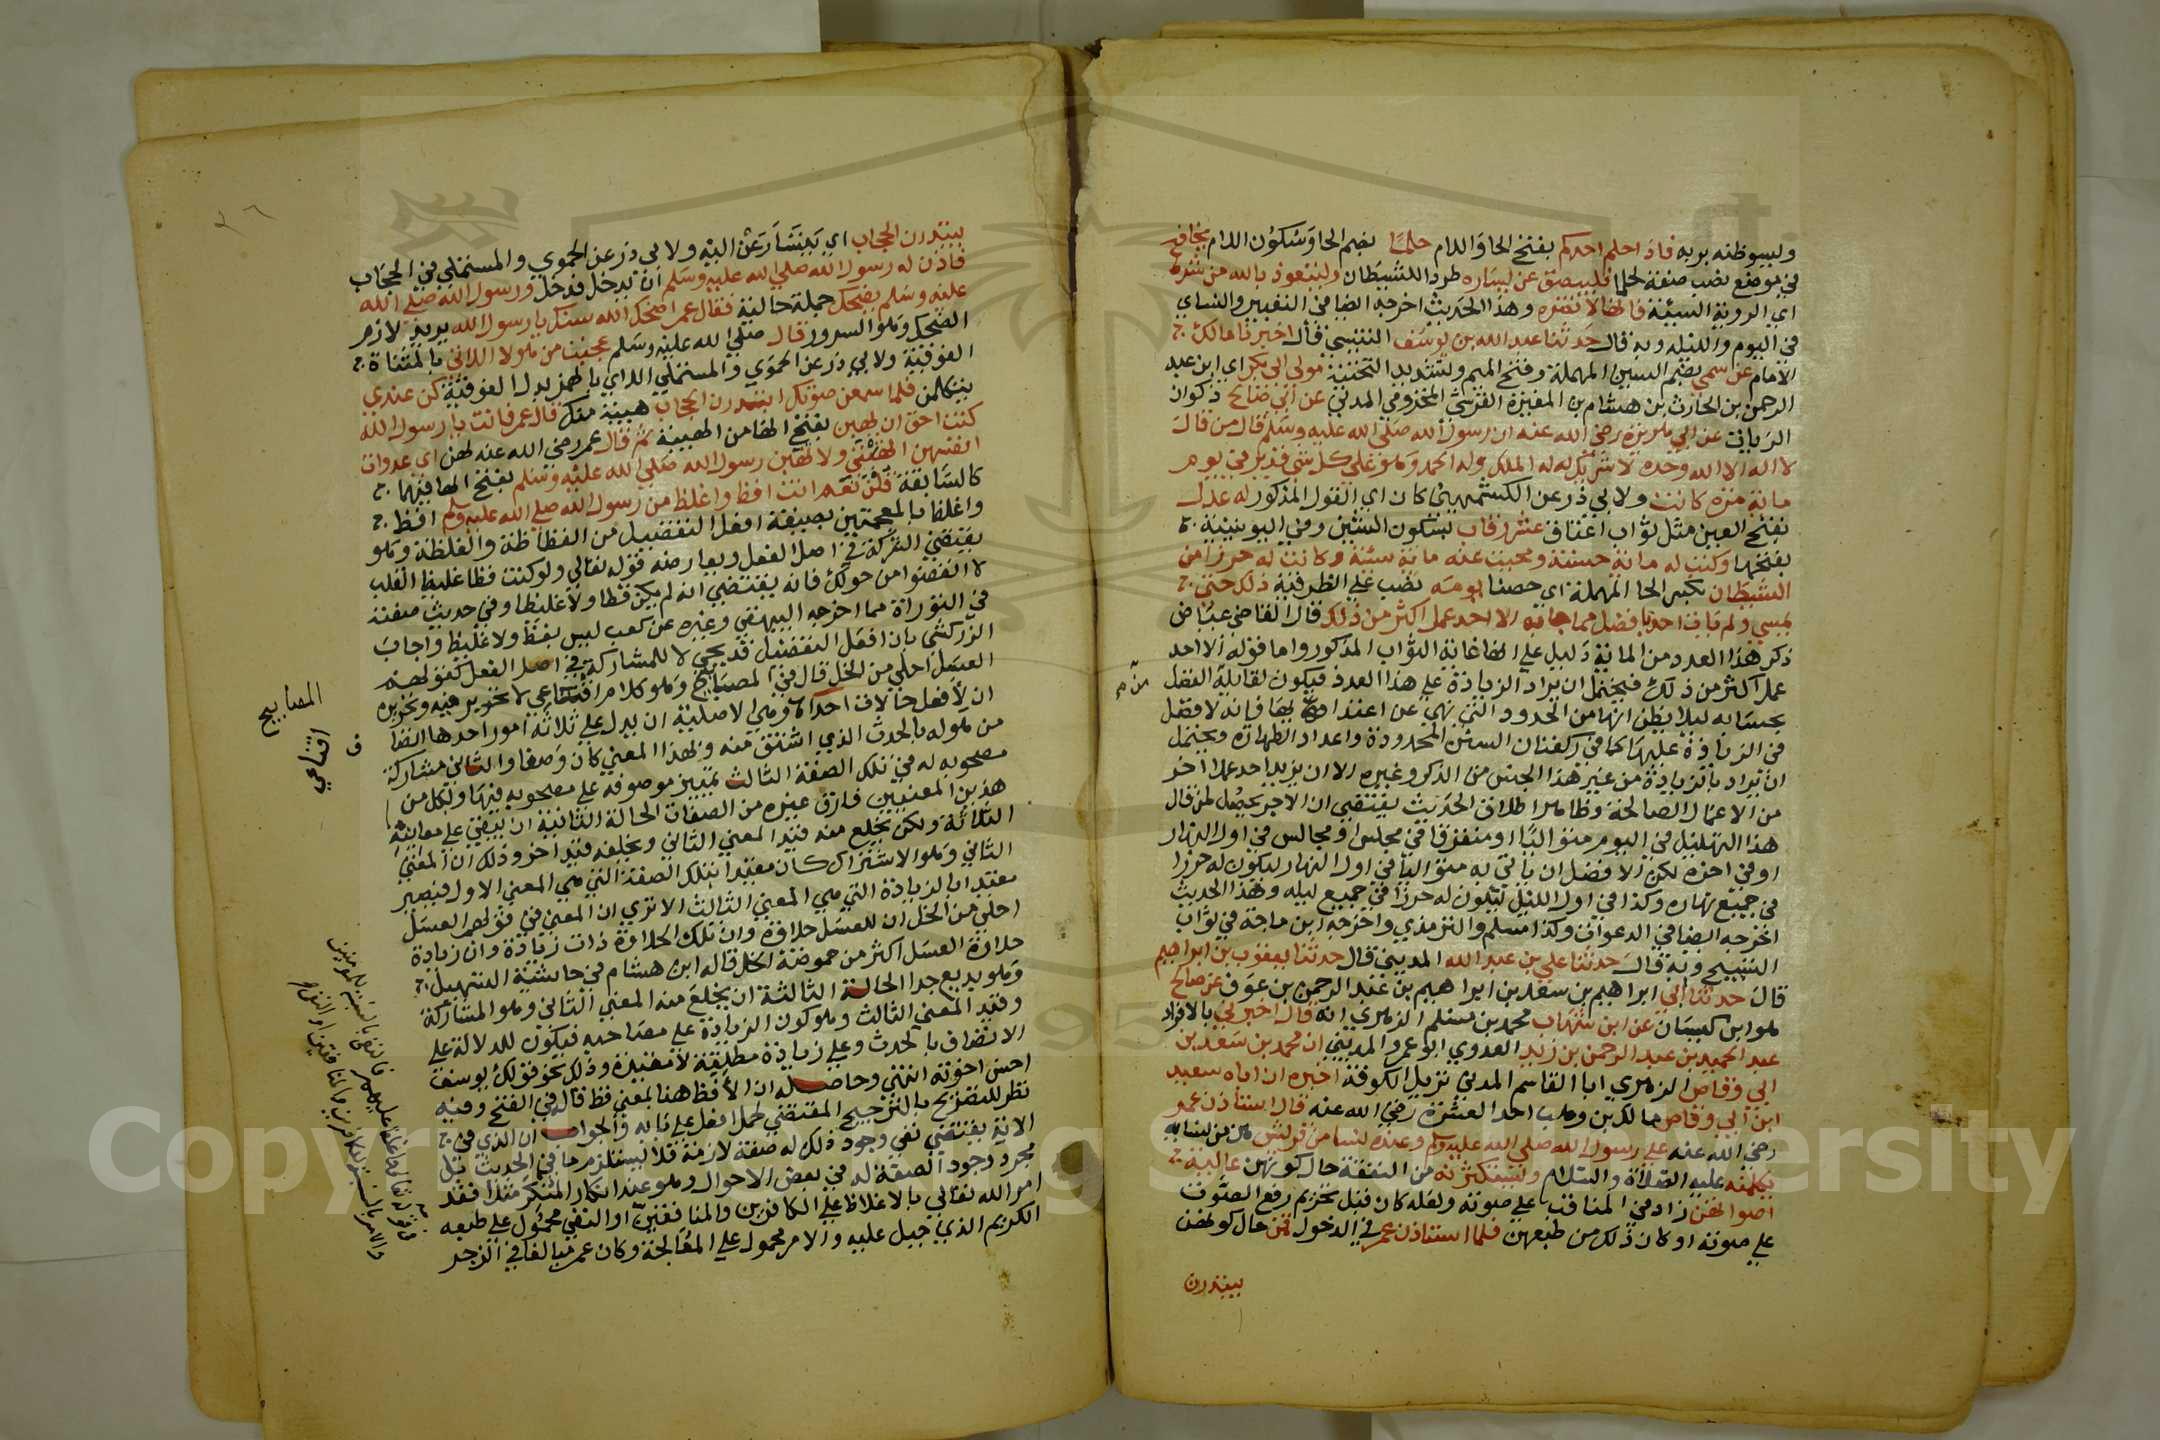 وليسوظنه بربه فاذا حلم احدكم بفتح الحا واللام حلما بضم الحا وسكون اللام يخافه
في موضع نصب صفة لحلما فليبصق عن يساره طردا للشيطان وليتعوذ بالله من شرها
اي الروية السيئة فانها لا تضره وهذا الحديث اخرجه ايضا في التعبير والنساي
في اليوم والليلة وبه قال حدثنا عبد الله بن يوسف التنيسي قال اخبرنا مالك
الامام عن سمي بضم السين المهملة وفتح الميم وتشديد التحتية مولى ابي بكر اي ابن عبد
الرحمن بن الحارث بن هشام بن المغيرة القرشي المخزومي المدني عن ابي صالح ذكوان
الزيات عن ابي هريرة رضي الله عنه ان رسول الله صلي الله عليه وسلم قال من قال
لا اله الا الله وحده لا شريك له له الملك وله الحمد وهو علي كل شي قدير في يوم
ماية مرة كانت ولابي ذر عن الكشميهني كان اي القول المذكور له عدل
بفتح العين مثل ثواب اعتاق عشر رقاب بسكون الشين وفي اليونينية
بفتحها وكتبت له ماية حسنة ومحيت عنه ماية سيئة وكانت له حرزا من
الشيطان بكسر الحا المهملة اي حصنا يومه نصب علي الظرفية ذلك حتي
يمسي ولم يات احد بافضل مما جا به الا احد عمل اكثر من ذلك قال القاضي عياض
ذكر هذا العدد من الماية دليل علي انها غاية الثواب المذكور واما قوله الا احد
عمل اكثر من ذلك فيحتمل ان يراد الزيادة علي هذا العدد فيكون لقايله الفضل
بحسابه ليلا يظن انها من الحدود التي نهي عن اعتدايها وانه لا فضل
في الزيادة عليها كما في ركعتان السنن المحدودة واعداد الطهارة ويحتمل
ان يراد بالزيادة من غير هذا الجنس من الذكر وغيره الا ان يزيد احد عملا اخر
من الاعمال الصالحة وظاهر اطلاق الحديث يقتضي ان الاجر يحصل لمن قال
هذا التهليل في اليوم متواليا او متفرقا في مجلس او مجالس في اول النهار
او في اخره لكن الافضل ان ياتي به متواليا في اول النهار ليكون له حرزا
في جميع نهاره وكذا في اول الليل ليكون له حرزا في جميع ليله وهذا الحديث
اخرجه ايضا في الدعوات وكذا مسلم والترمذي واخرجه ابن ماجة في ثواب
التسبيح وبه قال حدثنا علي بن عبد الله المديني قال حدثنا يعقوب بن ابراهيم
قال حدثنا ابي ابراهيم بن سعد بن ابراهيم بن عبد الرحمن بن عوف عن صالح
هو ابن كيسان عن ابن شهاب محمد بن مسلم الزهري انه قال اخبرني بالافراد
عبد الحميد بن عبد الرحمن بن زيد العدوي ابو عمر المديني ان محمد بن سعد بن
ابي وقاص الزهري ابا القاسم المدني نزيل الكوفة اخبره ان اباه سعيد
ابن ابي وقاص مالك بن وهيب احد العشرة رضي الله عنه قال استاذن عمر
رضي الله عنه علي رسول الله صلي الله عليه وسلم وعنده نسا من قريش هن من نسايه
يكلمنه عليه الصلاة والسلام ويستكثرنه من النفقة حال كونهن عالية
اصواتهن زاد في المناقب علي صوته ولعله كان قبل تحريم رفع الصوت
علي صوته او كان ذلك من طبعهن فلما استاذن عمر في الدخول قمن حال كونهن
يبتدرن
يبتدرن الحجاب اي يتسارعن اليه ولابي ذر عن الحموي والمستملي في الحجاب
فاذن له رسول الله صلي الله عليه وسلم ان يدخل فدخل ورسول الله صلي الله
عليه وسلم يضحك جملة حالية فقال عمر اضحك الله سنك يا رسول الله يريد لازم
الضحك وهو السرور قال صلي الله عليه وسلم عجبت من هولا اللاتي بالمثناة
الفوقية ولابي ذر عن الحموي والمستملي اللاي بالهمز بدل الفوقية كن عندي
يتكلمن فلما سمعن صوتك ابتدرن الحجاب هيبة منك قال عمر فانت يا رسول الله
كنت احق ان يهبن بفتح الها من الهيبة ثم قال عمر رضي الله عنه لهن اي عدوات
انفسهن اتهبنني ولا تهبن رسول الله صلي الله عليه وسلم بفتح الها فيهما
كالسابقة قلن نعم انت افظ واغلظ من رسول الله صلي الله عليه وسلم افظ
واغلظ بالمعجمتين بصيغة افعل التفضيل من الفظاظة والغلظة وهو
يقتضي الشركة في اصل الفعل ويعارضه قوله تعالي ولو كنت فظا غليظ القلب
لانفضوا من حولك فانه يقتضي انه لم يكن فظا ولا غليظا وفي حديث صفته
في التوراة مما اخرجه البيهقي وغيره عن كعب ليس بفظ ولا غليظ واجاب
الزركشي بان افعل التفضيل قد يجي لا للمشاركة في اصل الفعل كقولهم
العسل احلي من الخل قال في المصابيح وهو كلام اقناعي لا تحرير فيه وتحريره
ان لافعل حالات احداها وهي الاصلية ان يدل علي ثلاثة امور احدها اتصاف
من هو له بالحدث الذي اشتق منه وبهذا المعني كان وصفا والثاني مشاركة
مصحوبه له في تلك الصفة الثالث تمييز موصوفه علي مصحوبه فيها وبكل من
هذين المعنيين فارق غيره من الصفات الحالة الثانية ان يبقي علي معانيه
الثلاثة ولكن يخلع منه قيد المعني الثاني ويخلفه قيد اخر وذلك ان المعني
الثاني وهو الاشتراك كان مقيدا بتلك الصفة التي هي المعني الاول فيصير
مقيدا بالزيادة التي هي المعني الثالث الا تري ان المعني في قولهم العسل
احلي من الخل ان للعسل حلاوة وان تلك الحلاوة ذات زيادة وان زيادة
حلاوة العسل اكثر من حموضة الخل قاله ابن هشام في حاشية التسهيل
وهو بديع جدا الحالة الثالثة ان يخلع منه المعني الثاني وهو المشاركة
وقيد المعني الثالث وهو كون الزيادة علي مصاحبه فيكون للدلالة علي
الاتصاف بالحدث وعلي زيادة مطلقة لا مقيدة وذلك نحو قولك يوسف
احسن اخوته انتهي وحاصله ان الافظ هنا بمعني فظ قاله في الفتح وفيه
نظر للتصريح بالترجيح المقتضي لحمل افعل علي بابه والجواب ان الذي في
الاية يقتضي نفي وجود ذلك له صفة لازمة فلا يستلزم ما في الحديث بل
مجرد وجود الصفة له في بعض الاحوال وهو عند انكار المنكر مثلا فقد
امر الله تعالي بالاغلاظ علي الكافرين والمنافقين او النفي محمول علي طبعه
الكريم الذي جبل عليه والامر محمول علي المعالجة وكان عمر مبالغا في الزجر
المصابيح
اقناعي